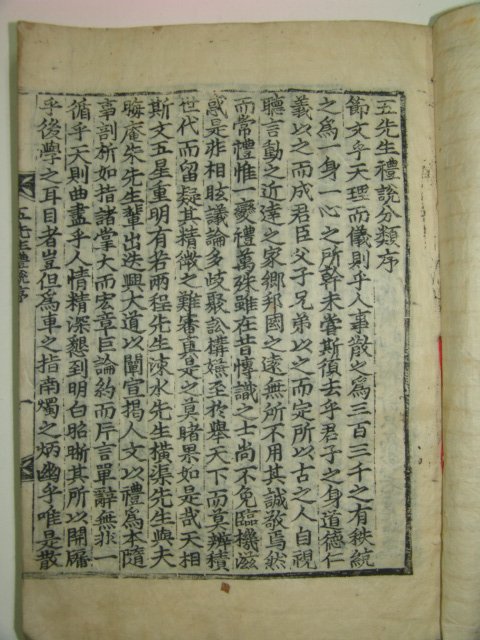 五先生禮說分類序
節文乎天理而儀則乎人事散之爲三百三千之有秩統
之爲一身一心之所幹未嘗斯須去乎君子之身道德仁
義以之而成君臣父子兄弟以之而定所以古之人自視
聽言動之近達之家鄉邦國之遠無所不用其誠敬焉然
而常禮惟一變禮萬殊雖在昔博識之士尚不免臨機滋
惑是非相眩議論多歧聚訟構嫌至於舉天下而莫辨積
世代而留疑其精微之難審眞是之莫睹果如是哉天相
斯文五星重明有若兩程先生涑水先生橫渠先生與夫
晦庵朱先生輩出迭興大道以闡官揭人文以禮爲本隨
事剖析如指諸掌大而宏章巨論約而片言單辭無非一
循乎天則曲盡乎人情精深懇到明白昭晰其所以開牖
乎後學之耳目者豈但爲車之指南燭之炳幽乎唯是散
五先生禮說序 一